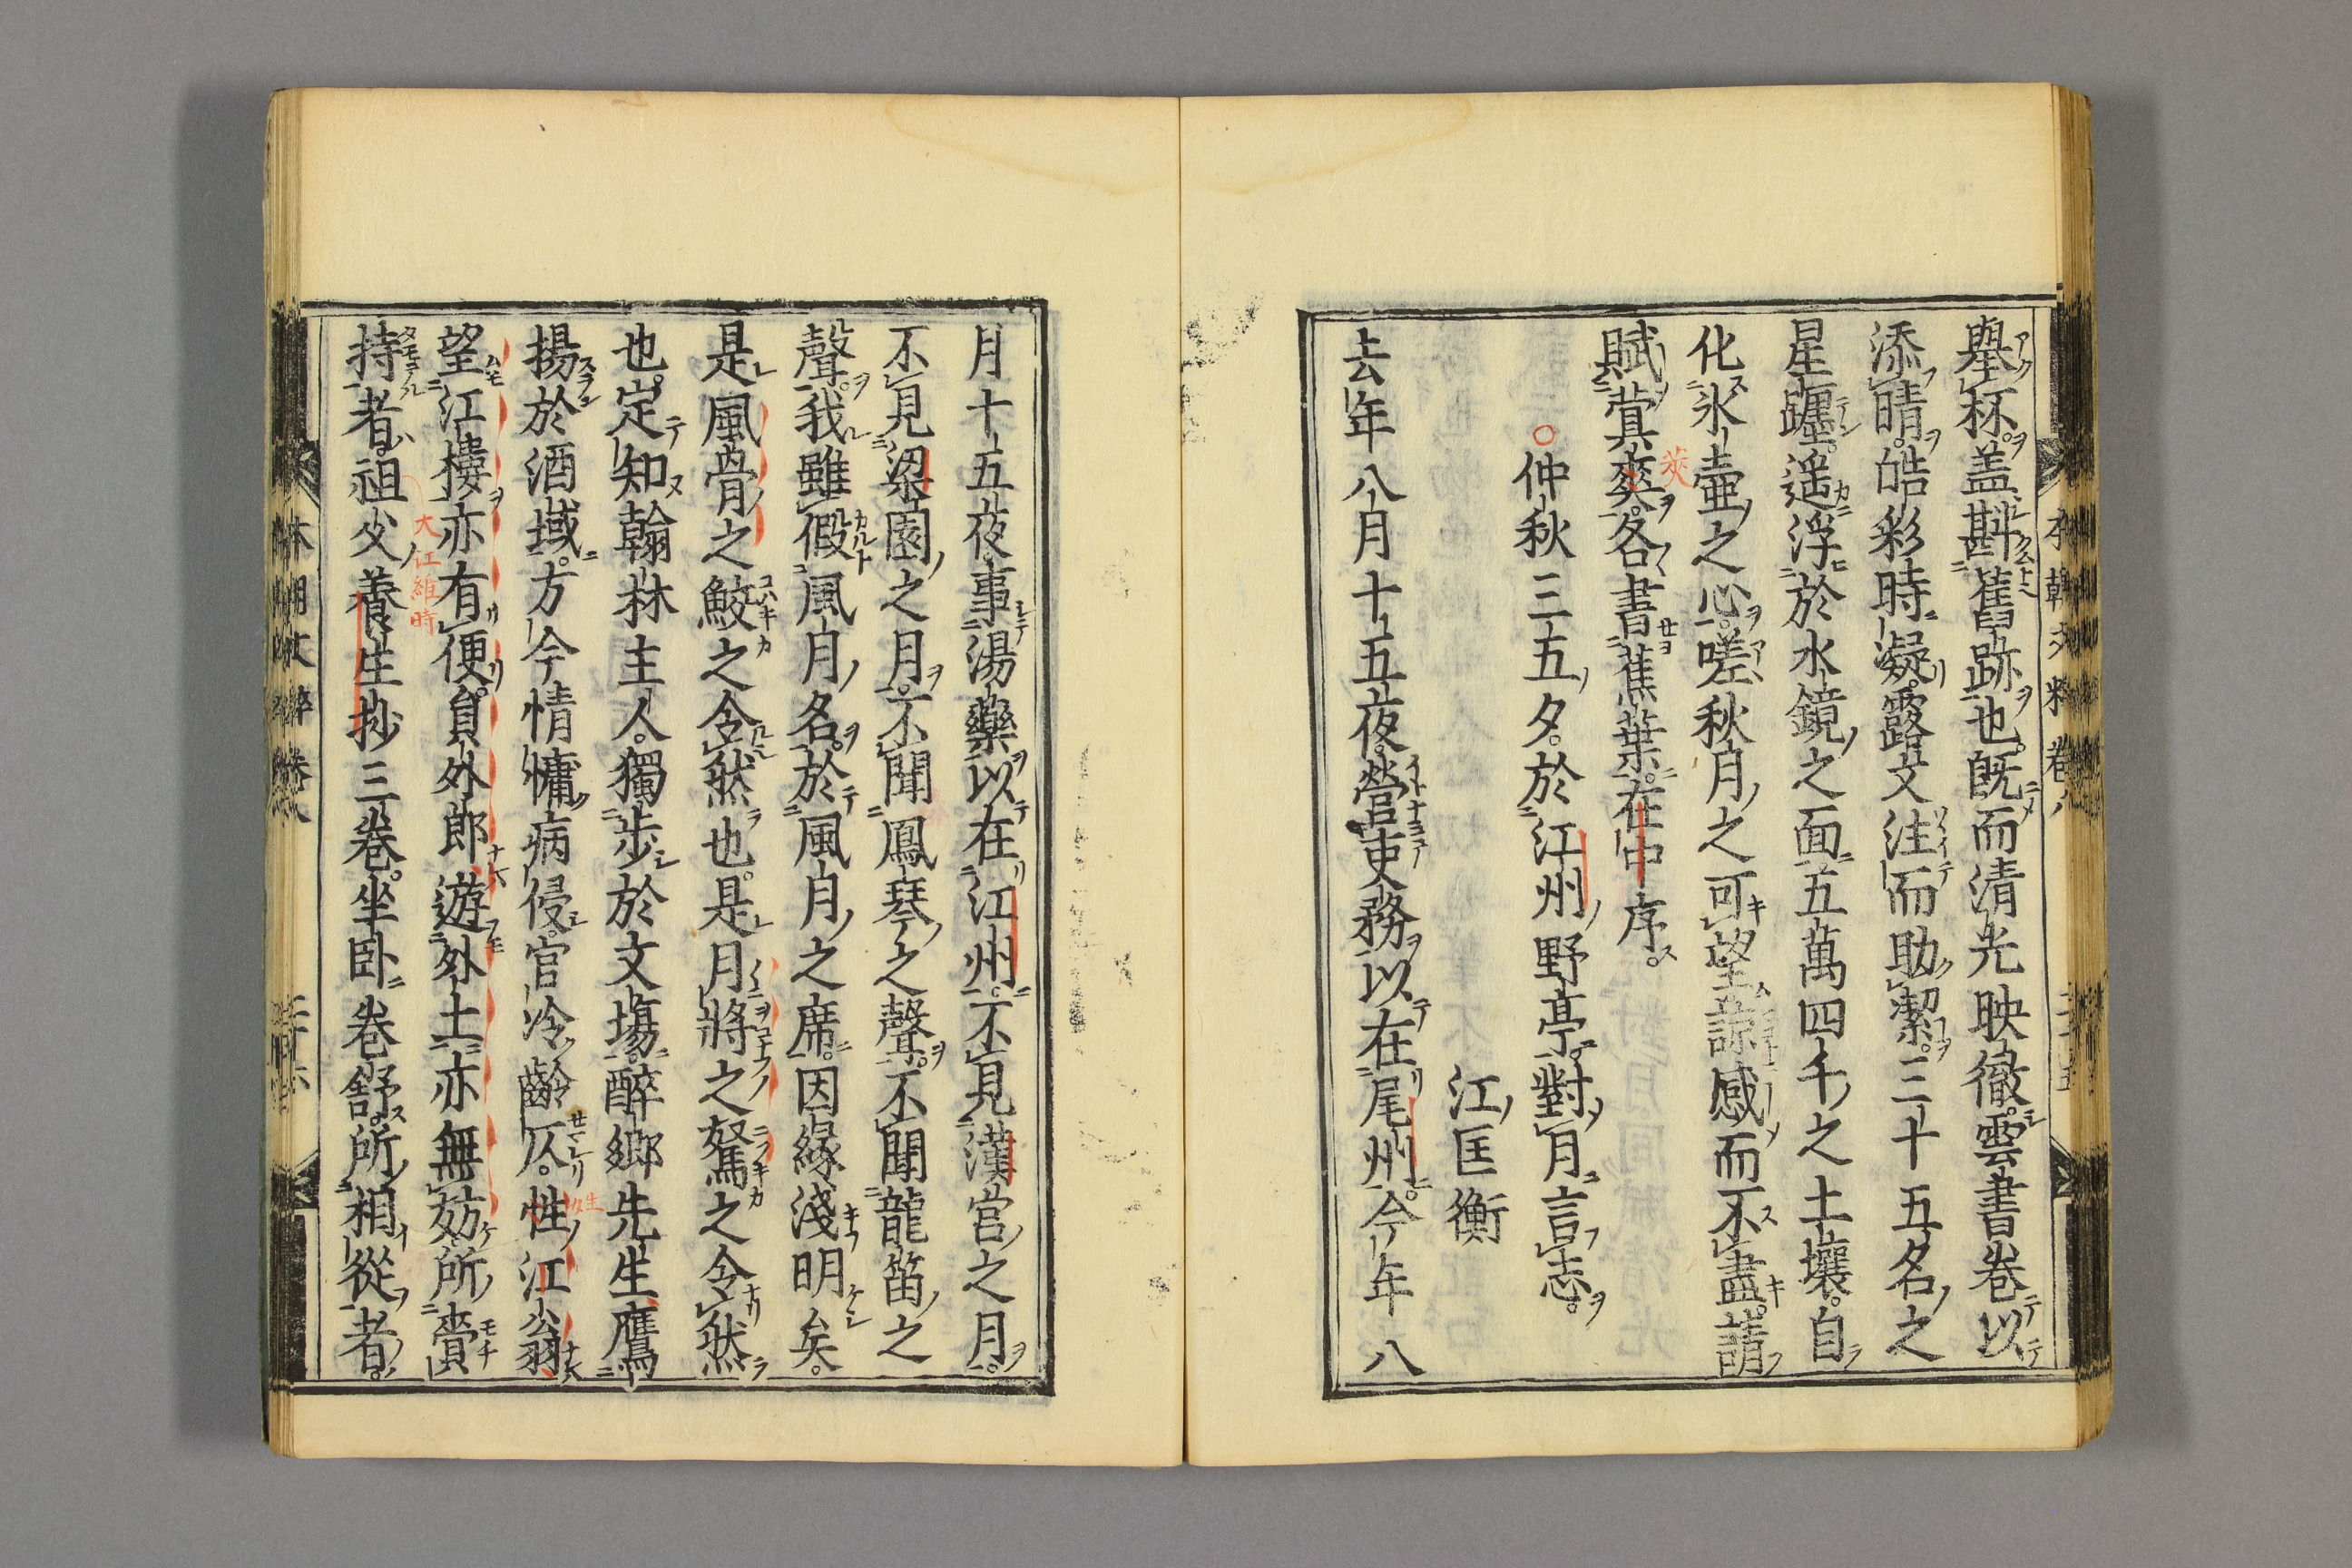 舉杯。盖斟舊跡也。既而清光映徹。雲書卷以
添晴。皓彩時凝。露文注而助潔。三十五名之
星躔。遥浮於水鏡之面。五萬四千之土壤。自
化氷壺之心。嗟秋月之可望。諒感而不盡。請
賦蓂莢。各書蕉葉。在中序。
莢
仲秋三五夕。於江州野亭。對月言志。
江匡衡
去年八月十五夜。營吏務以在尾州。今年八
月十五夜。事湯藥以在江州。不見漢宮之月。
不見梁園之月。不聞鳳琴之聲。不聞龍笛之
聲。我雖假風月名。於風月之席。因緣淺明矣。
是風骨之鮫之令然也。是月將之駑之令然
也。定知翰林主人。獨步於文場。醉鄉先生鷹
揚於酒域。方今情慵病侵。官冷齡仄。性江翁
望江樓亦有便。員外郎遊外土亦無妨。所賷
持者。祖父養生抄三卷。坐卧卷舒。所相從者。
大江維時
本朝文粹卷八